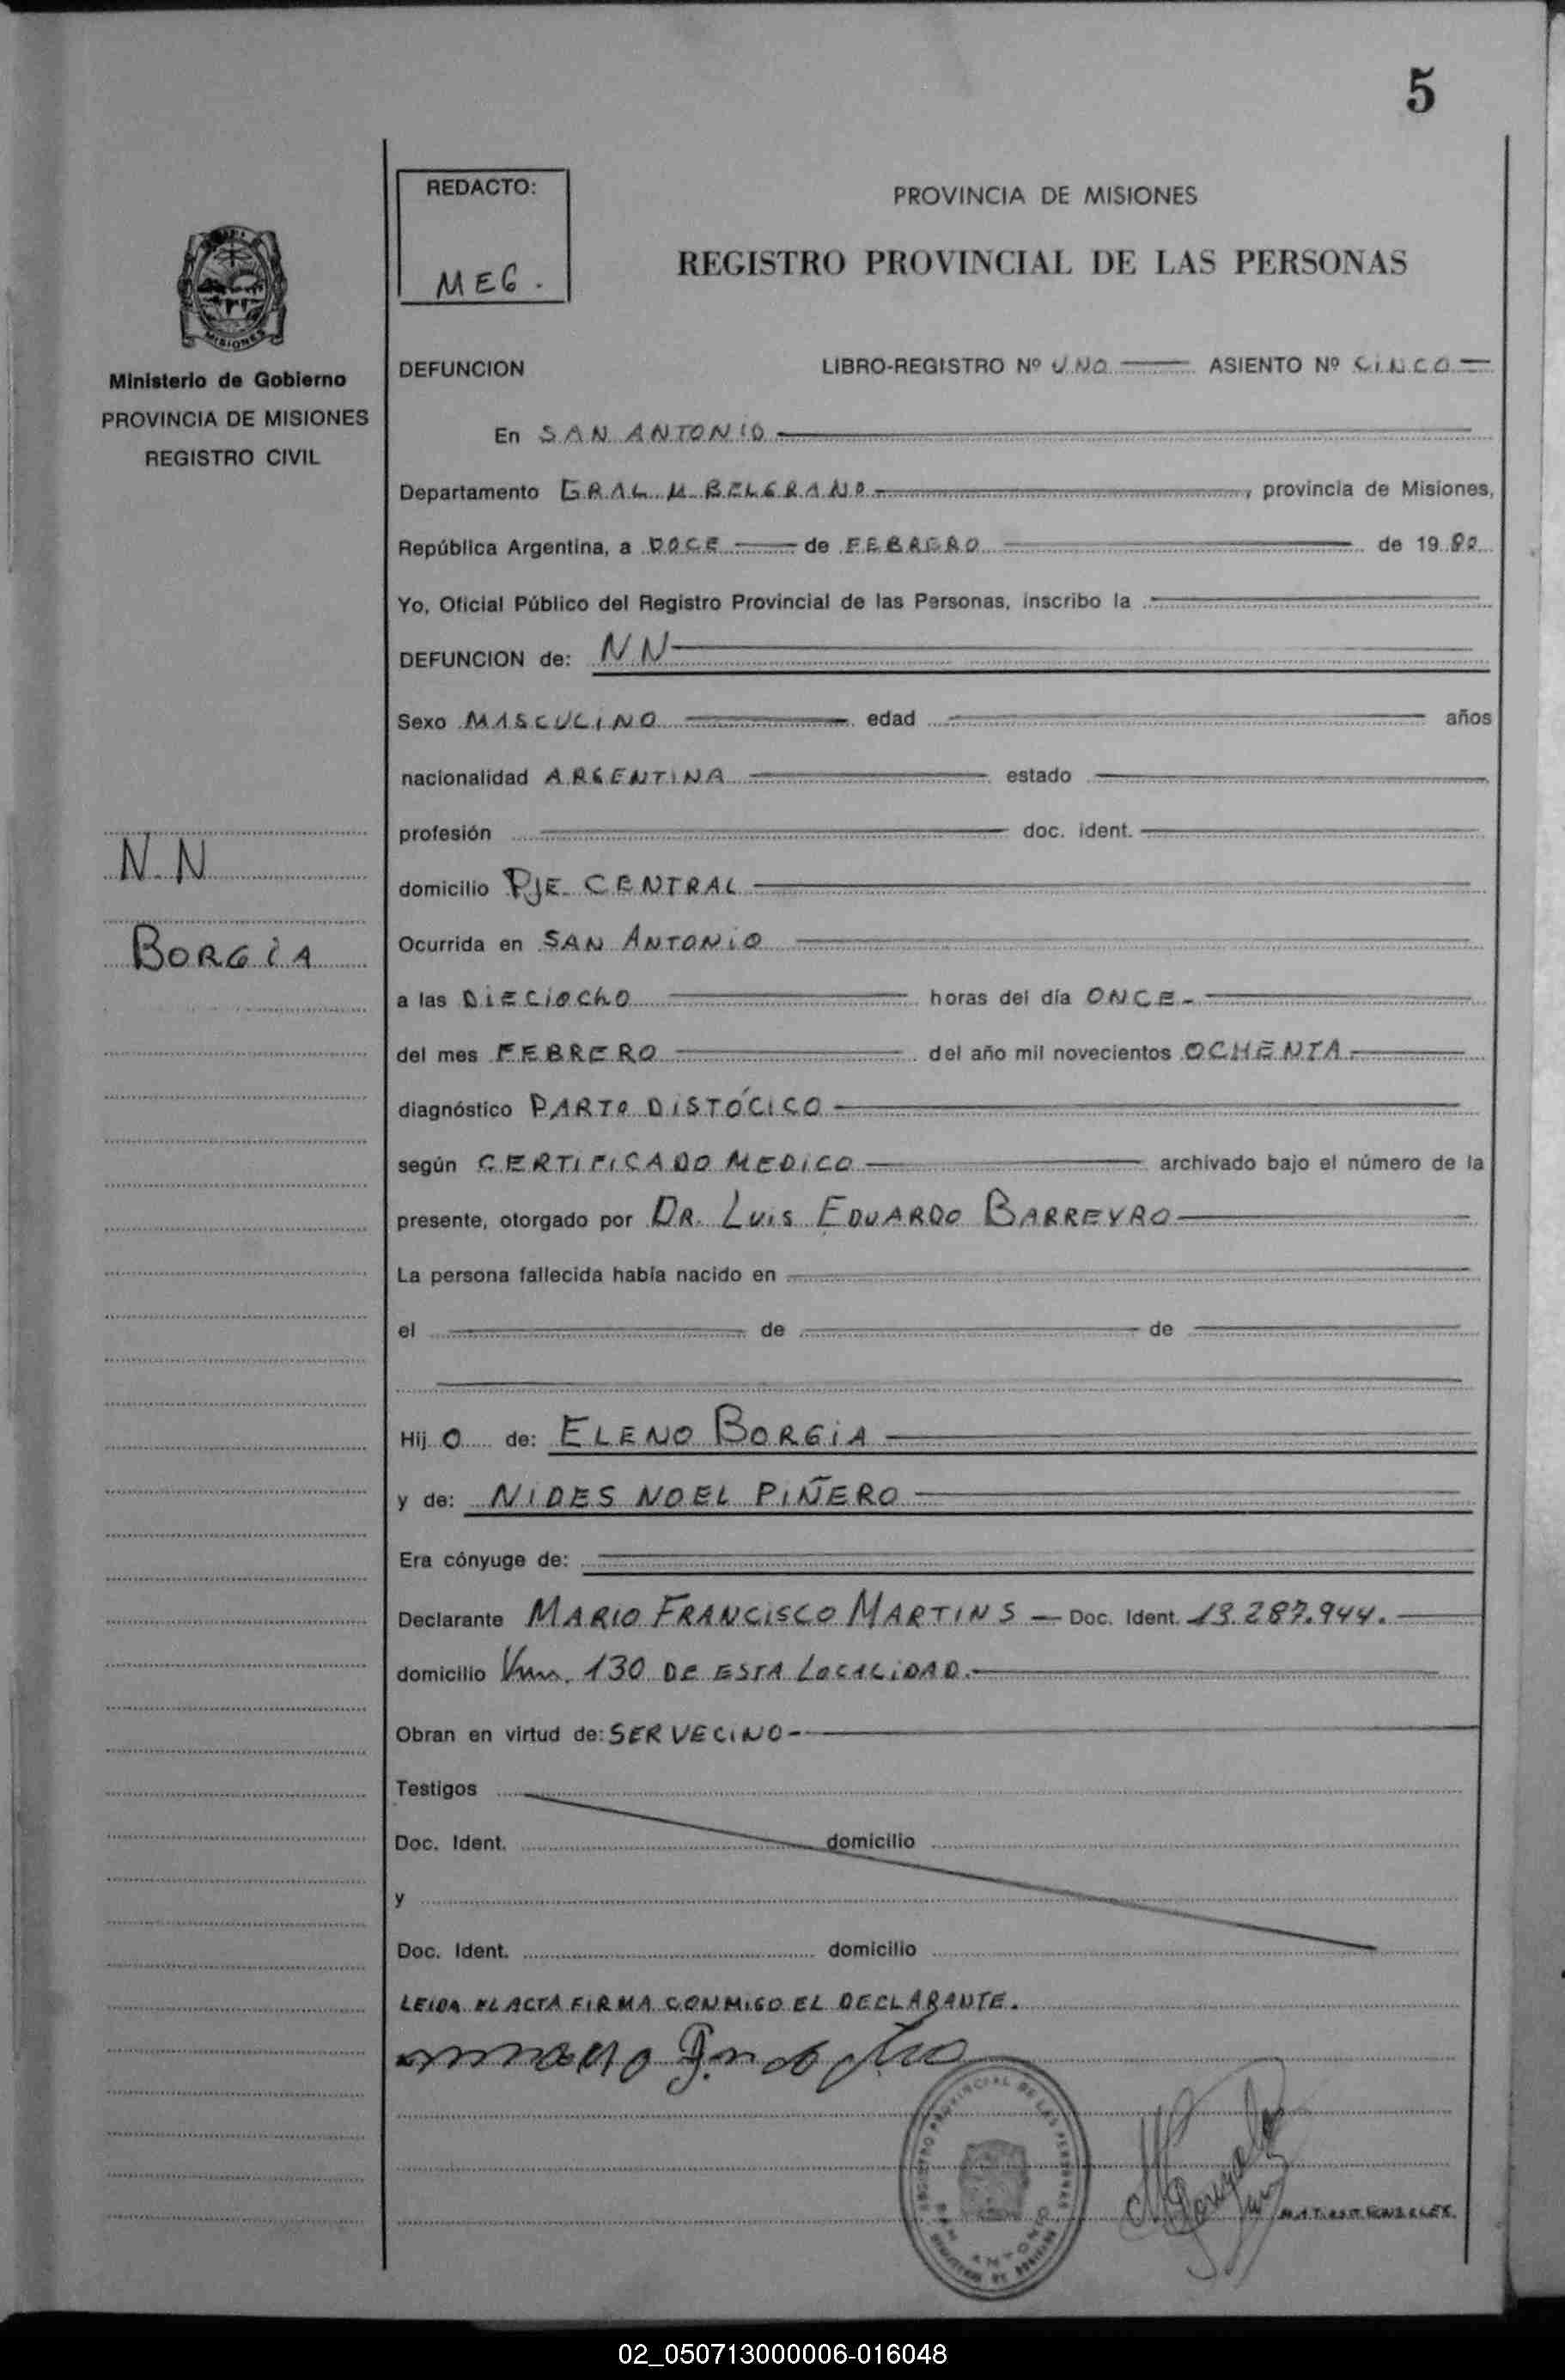 5
REDACTO:
MEG.
PROVINCIA DE MISIONES
REGISTRO PROVINCIAL DE LAS PERSONAS
MISIONES
Ministerio de Gobierno
PROVINCIA DE MISIONES
REGISTRO CIVIL
N.N
BORGiA
DEFUNCION LIBRO-REGISTRO Nº UNO ASIENTO Nº CINCO
En SAN ANTONIO
Departamento GRAL M. BELGRANO, provincia de Misiones,
República Argentina, a DOCE de FEBRERO de 1980
Yo, Oficial Público del Registro Provincial de las Personas, inscribo la
DEFUNCION de: N.N
Sexo MASCULINO edad años
nacionalidad ARGENTINA estado
profesión doc. ident.
domicilio PJE CENTRAL
Ocurrida en SAN ANTONIO
a las DIECIOCHO horas del día ONCE.
del mes FEBRERO del año mil novecientos OCHENTA
diagnóstico PARTO DISTÓCICO
según CERTIFICADO MEDICO archivado bajo el número de la
presente, otorgado por DR. LUIS EDUARDO BARREYRO
La persona fallecida había nacido en
el de de
Hij O de: ELENO BORGIA
y de: NIDES NOEL PIÑERO
Era cónyuge de:
Declarante MARIO FRANCISCO MARTINS — Doc. Ident. 13.287.944.
domicilio 130 DE ESTA LOCALIDAD.
Obran en virtud de: SER VECINO-
Testigos
Doc. Ident. domicilio
y
Doc. Ident. domicilio
LEIDA EL ACTA FIRMA CONMIGO EL DECLARANTE.
REGISTRO PROVINCIAL DE LAS PERSONAS
SAN ANTONIO
02_050713000006-016048